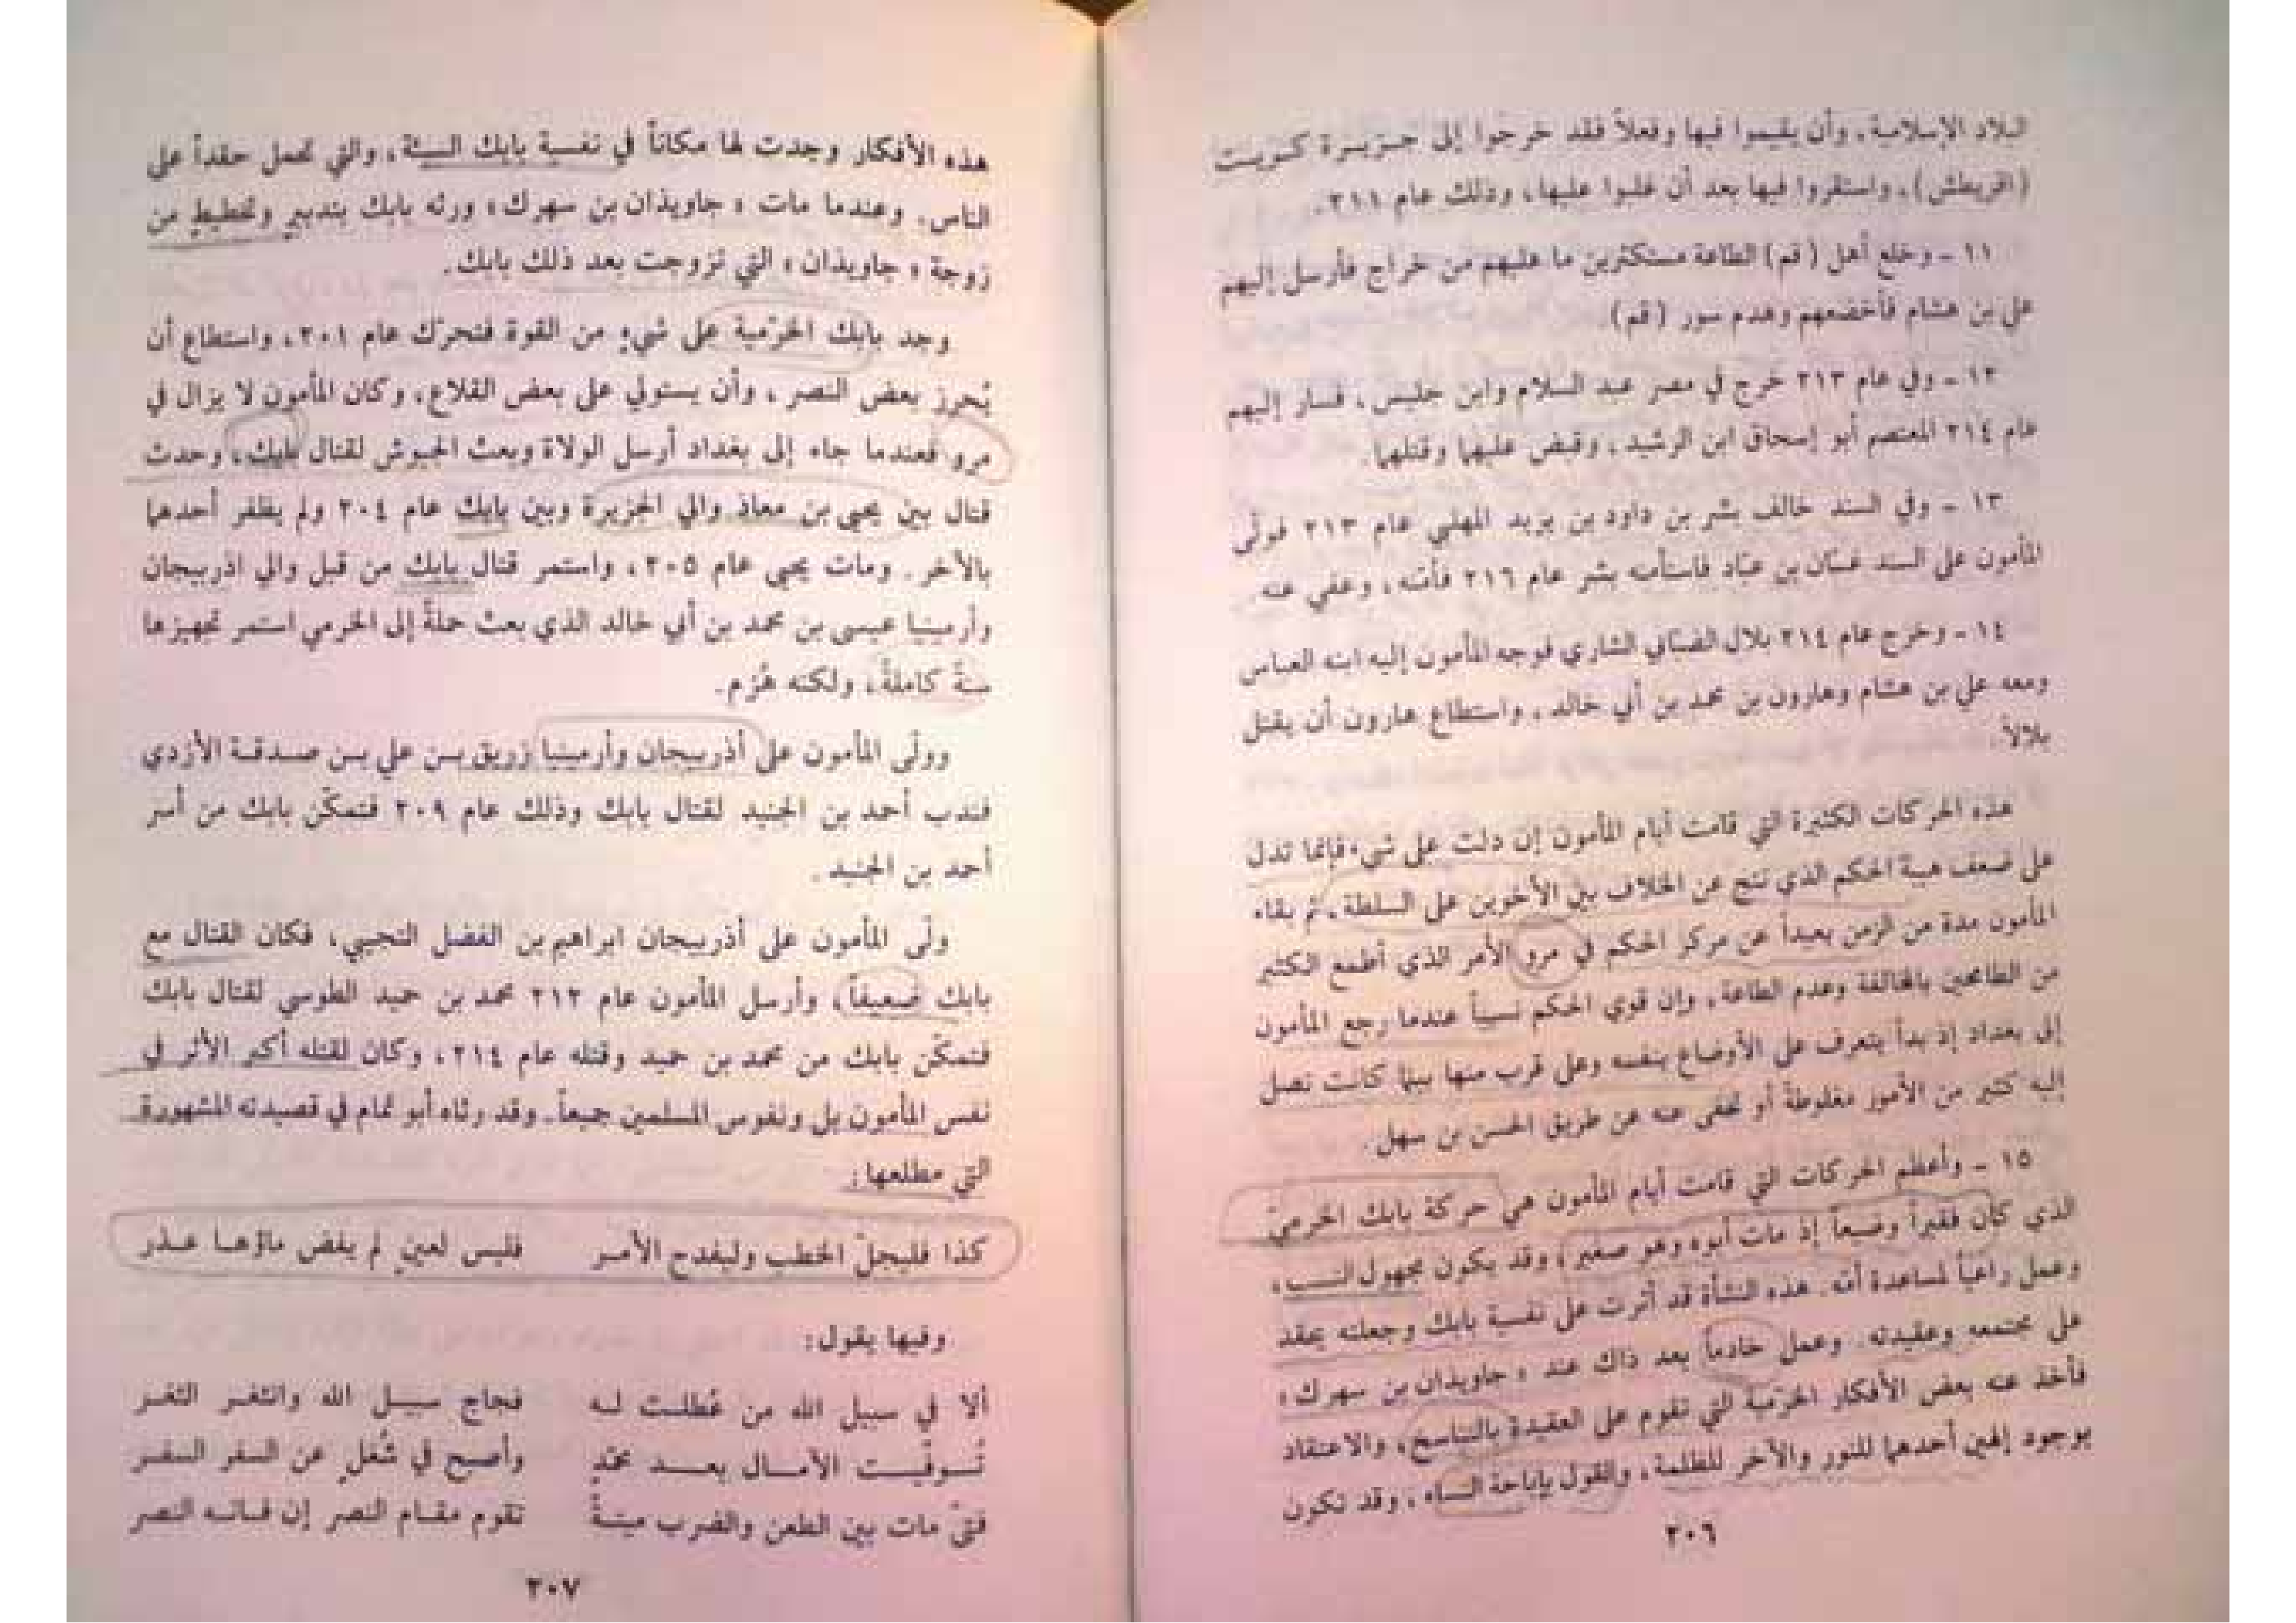 البلاد الإسلامية، وأن يقيموا فيها وفعلاً فقد خرجوا إلى جزيرة كريت
(اقريطش)، واستقروا فيها بعد أن غلبوا عليها، وذلك عام ٢١١.
١١ - وخلع أهل (قم) الطاعة مستكثرين ما عليهم من خراج فأرسل إليهم
علي بن هشام فأخضعهم وهدم سور (قم).
١٢ - وفي عام ٢١٣ خرج في مصر عبد السلام وابن جليس، فسار إليهم
عام ٢١٤ المعتصم أبو إسحاق ابن الرشيد، وقبض عليهما وقتلهما.
١٣ - وفي السند خالف بشر بن داود بن يزيد المهلبي عام ٢١٣ فولّى
المأمون على السند غسّان بن عبّاد فاستأمنه بشر عام ٢١٦ فأمّنه، وعفي عنه.
١٤ - وخرج عام ٢١٤ بلال الضبّابي الشاري فوجه المأمون إليه ابنه العباس
ومعه علي بن هشام وهارون بن محمد بن أبي خالد، واستطاع هارون أن يقتل
بلالاً.
هذه الحركات الكثيرة التي قامت أيام المأمون إن دلت على شيء فإنما تدل
على ضعف هيبة الحكم الذي نتج عن الخلاف بين الأخوين على السلطة، ثم بقاء
المأمون مدة من الزمن بعيداً عن مركز الحكم في مرو الأمر الذي أطمع الكثير
من الطامحين بالمخالفة وعدم الطاعة، وإن قوي الحكم نسبياً عندما رجع المأمون
إلى بغداد إذ بدأ يتعرف على الأوضاع بنفسه وعلى قرب منها بينما كانت تصل
إليه كثير من الأمور مغلوطة أو تخفى عنه عن طريق الحسن بن سهل.
١٥ - وأعظم الحركات التي قامت أيام المأمون هي حركة بابك الخرميّ
الذي كان فقيراً وضيعاً إذ مات أبوه وهو صغير، وقد يكون مجهول النسب،
وعمل راعياً لمساعدة أمّه. هذه النشأة قد أثرت على نفسية بابك وجعلته يحقد
على مجتمعه وعقيدته. وعمل خادماً بعد ذاك عند «جاويذان بن سهرك»
فأخذ عنه بعض الأفكار الخرّمية التي تقوم على العقيدة بالتناسخ، والاعتقاد
بوجود إلهين أحدهما للنور والآخر للظلمة، والقول بإباحة النساء، وقد تكون
٢٠٦
هذه الأفكار وجدت لها مكاناً في نفسية بابك السيئة، والتي تحمل حقداً على
الناس. وعندما مات «جاويذان بن سهرك» ورثه بابك بتدبيرٍ وتخطيطٍ من
زوجة «جاويذان» التي تزوجت بعد ذلك بابك.
وجد بابك الخرّمية على شيءٍ من القوة فتحرّك عام ٢٠١، واستطاع أن
يُحرز بعض النصر، وأن يستولي على بعض القلاع، وكان المأمون لا يزال في
مرو فعندما جاء إلى بغداد أرسل الولاة وبعث الجيوش لقتال بابك، وحدث
قتال بين يحيى بن معاذ والي الجزيرة وبين بابك عام ٢٠٤ ولم يظفر أحدهما
بالآخر. ومات يحيى عام ٢٠٥، واستمر قتال بابك من قبل والي اذربيجان
وأرمينيا عيسى بن محمد بن أبي خالد الذي بعث حملةً إلى الخرمي استمر تجهيزها
سنةً كاملةً، ولكنه هُزم.
وولّى المأمون على أذربيجان وأرمينيا زريق بن علي بن صدقة الأزدي
فندب أحمد بن الجنيد لقتال بابك وذلك عام ٢٠٩ فتمكّن بابك من أسر
أحمد بن الجنيد.
ولّى المأمون على أذربيجان ابراهيم بن الفضل التجيبي، فكان القتال مع
بابك ضعيفاً، وأرسل المأمون عام ٢١٢ محمد بن حميد الطوسي لقتال بابك
فتمكّن بابك من محمد بن حميد وقتله عام ٢١٤، وكان لقتله أكبر الأثر في
نفس المأمون بل ونفوس المسلمين جميعاً. وقد رثاه أبو تمام في قصيدته المشهورة
التي مطلعها:
كذا فليجلّ الخطب وليفدح الأمر فليس لعينٍ لم يفض ماؤها عذر
وفيها يقول:
ألا في سبيل الله من عُطلت له فجاج سبيل الله وانثغر الثغر
تُوفّيت الآمال بعد محمّدٍ وأصبح في شُغلٍ عن السفر السفر
فتىً مات بين الطعن والضرب ميتةً تقوم مقام النصر إن فاته النصر
٢٠٧